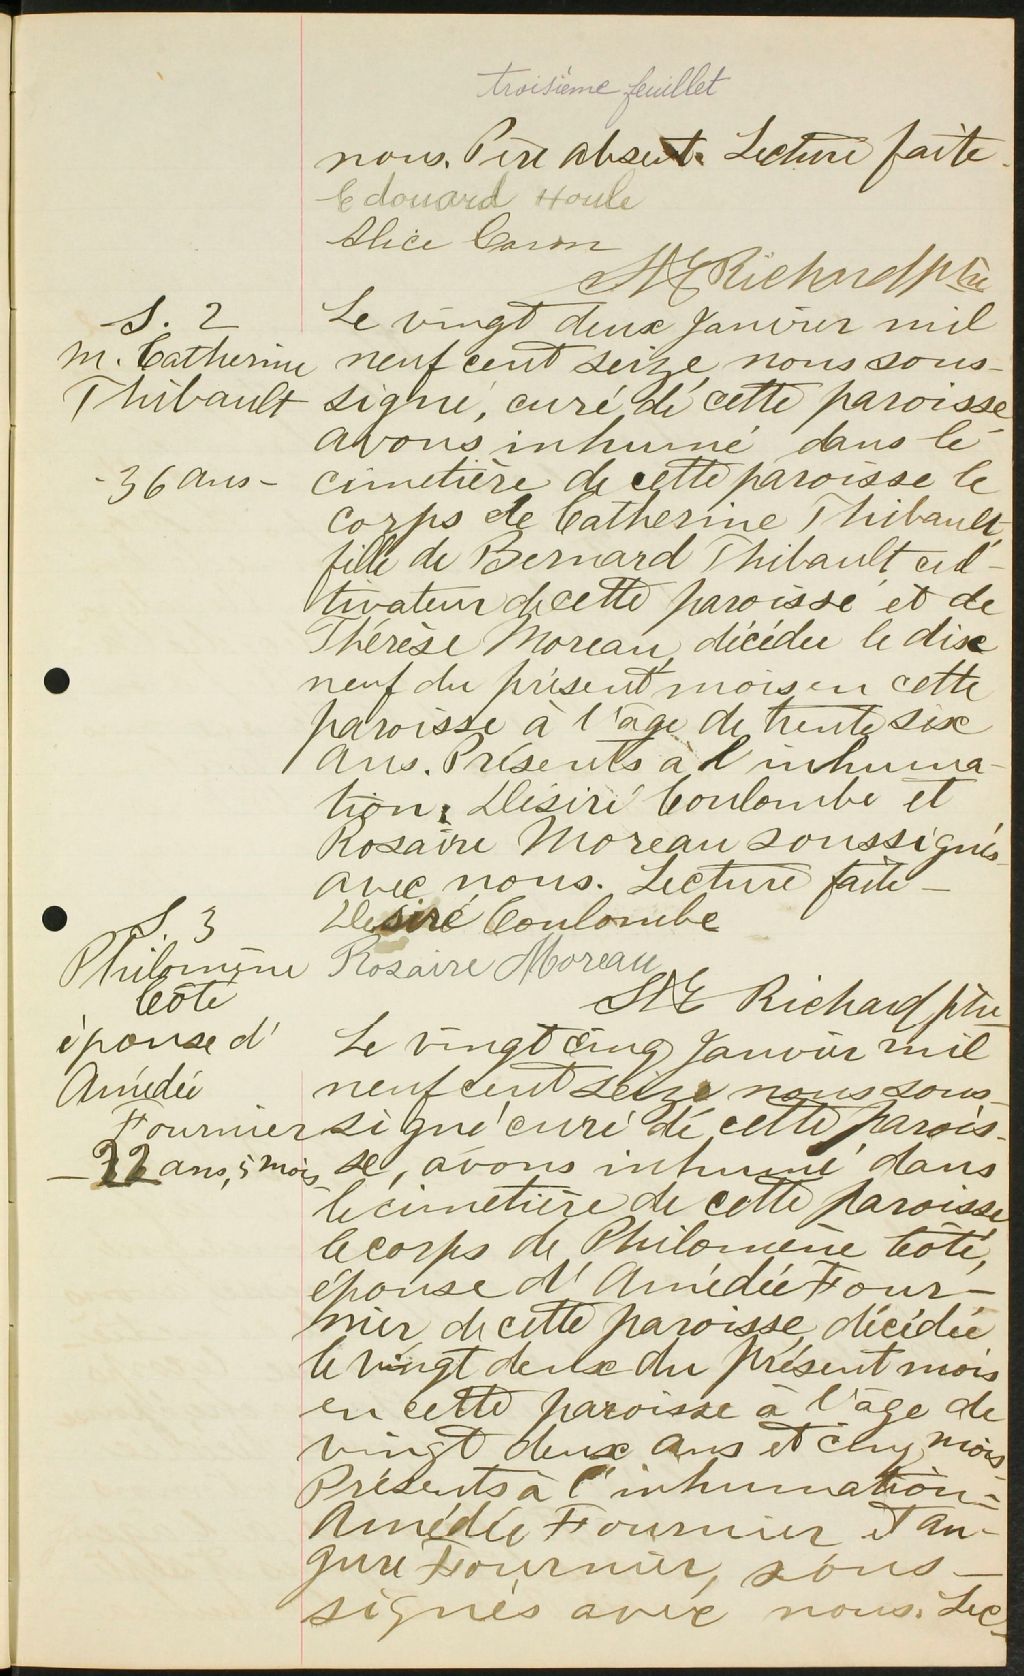 troisième feuillet
nous. Père absent. Lecture faite.
Edouard Houle
Alice Caron
Richard ptre
S. 2
M. Catherine
Thibault
- 36 ans -
Le vingt deux Janvier mil
neuf cent seize, nous sous-
signé, curé de cette paroisse
avons inhumé dans le
cimetière de cette paroisse le
corps de Catherine Thibault,
fille de Bernard Thibault cul-
tivateur de cette paroisse et de
Thérèse Moreau, décédée le dix
neuf du présent mois en cette
paroisse à l'âge de trente six
ans. Présents à l'inhuma-
tion, Désiré Coulombe et
Rosaire Moreau soussignés
avec nous. Lecture faite -
Désiré Coulombe
Rosaire Moreau
Richard ptre
S. 3
Philomène
Côté
épouse d'
Amédée
Fournier
- 22 ans, 5 mois
Le vingt cinq Janvier mil
neuf cent seize nous sous-
signé curé de cette parois-
se, avons inhumé dans
le cimetière de cette paroisse
le corps de Philomène Côté,
épouse d'Amédée Four-
nier de cette paroisse, décédée
le vingt deux du présent mois
en cette paroisse à l'âge de
vingt deux ans et cinq mois.
Présents à l'inhumation -
Amédée Fournier et Au-
gure Fournier, sous-
signés avec nous. Lec-